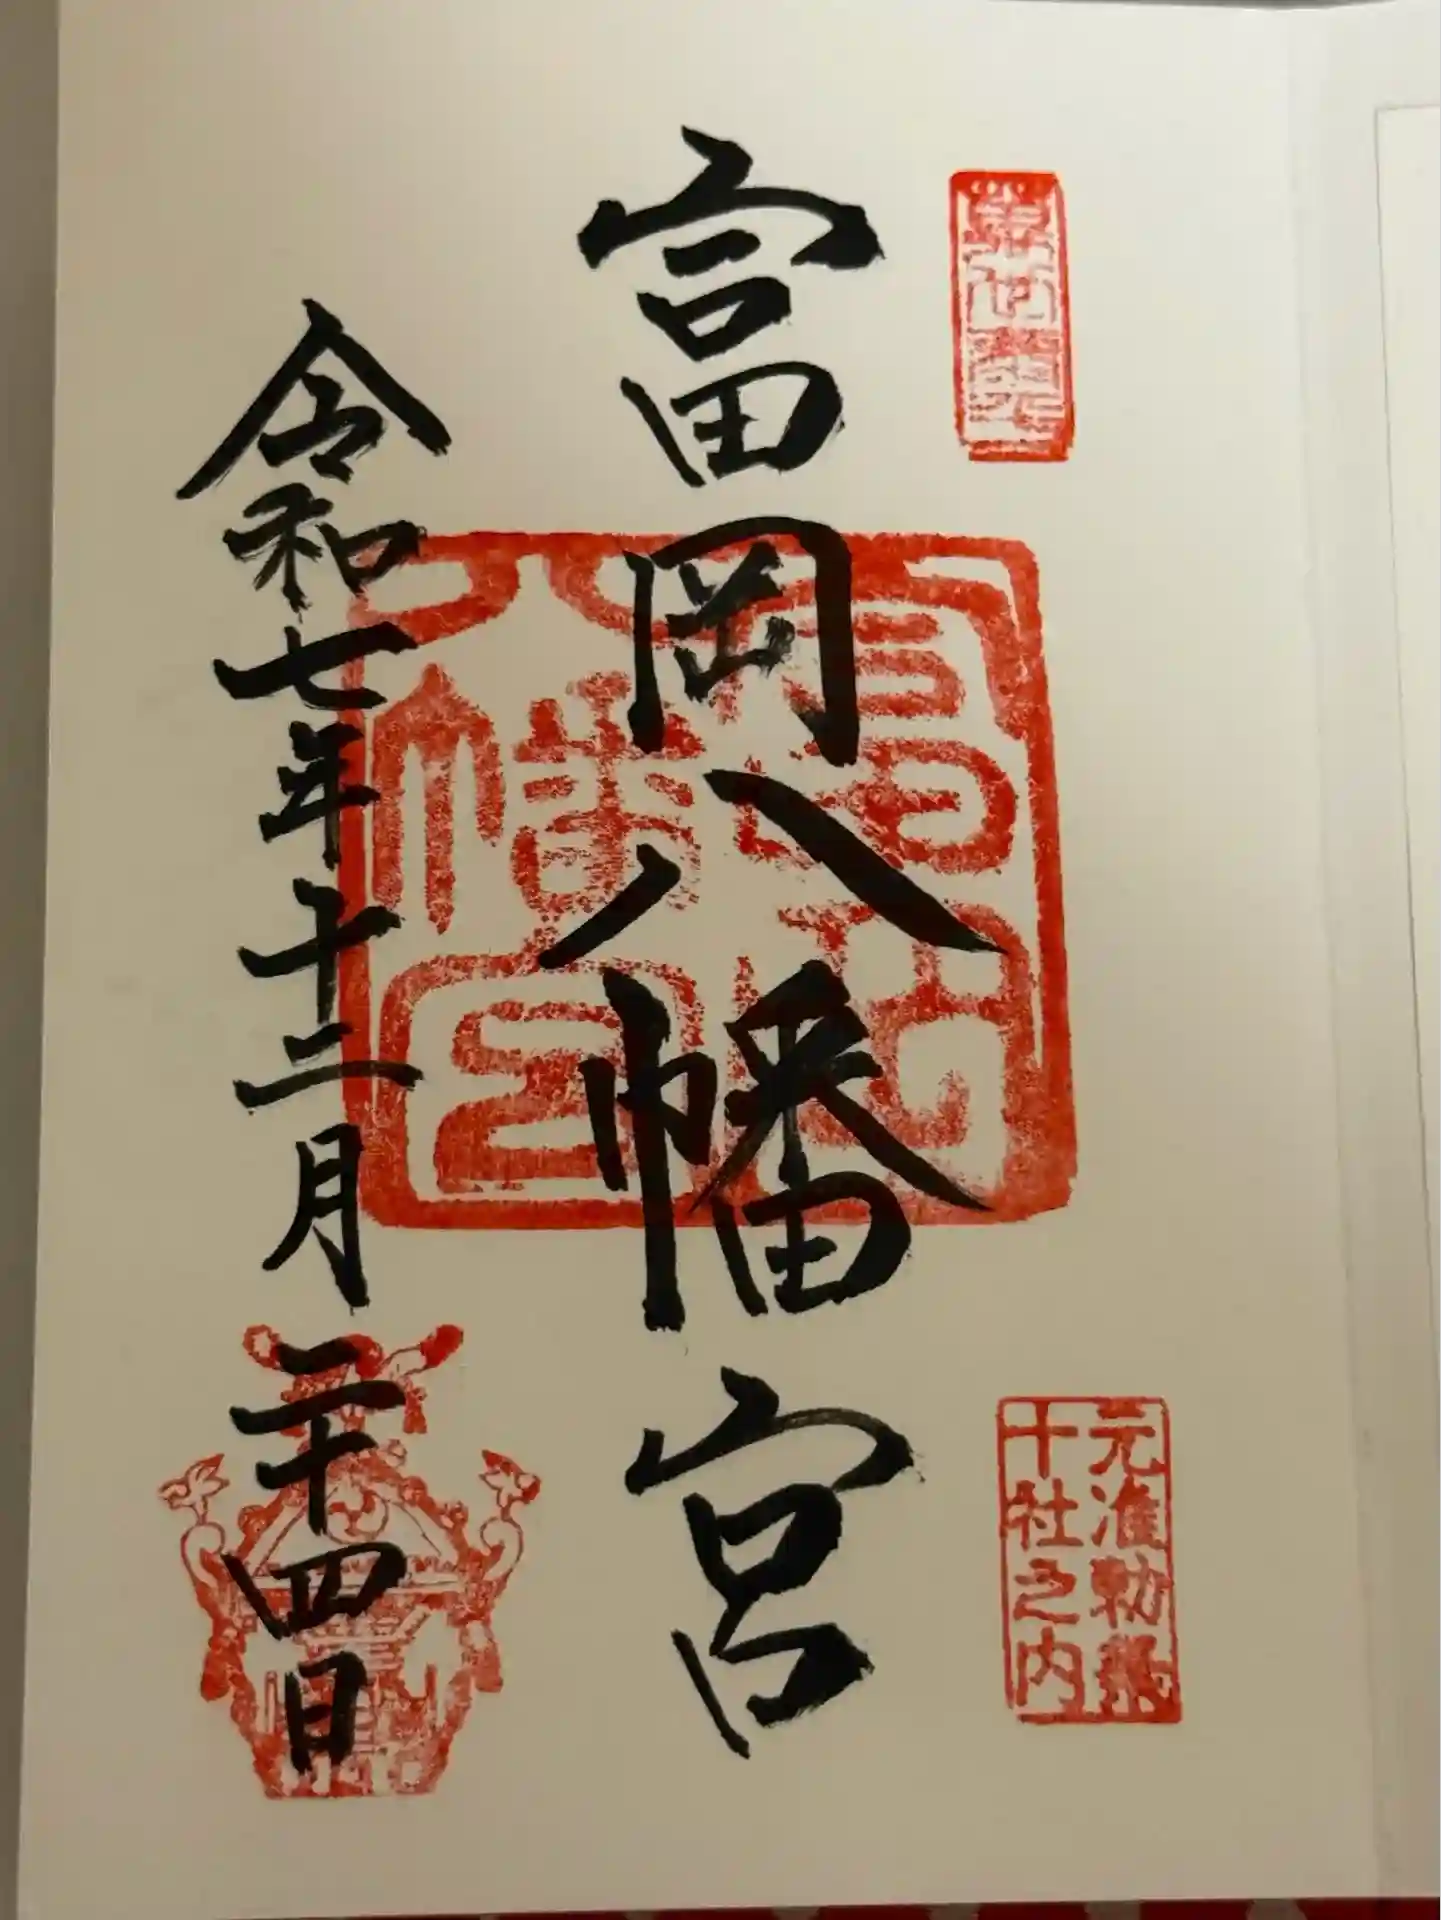 元准勅祭
十社之内
富岡八幡宮
富岡
八幡宮
令和七年十二月二十四日